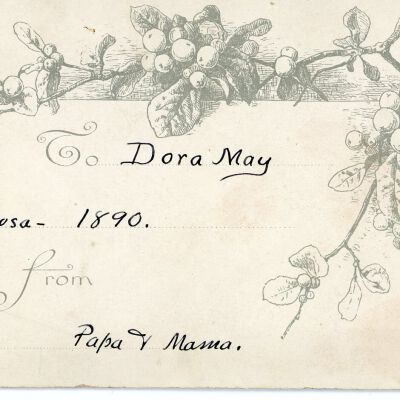 To Dora May
osa- 1890.
From
Papa & Mama.